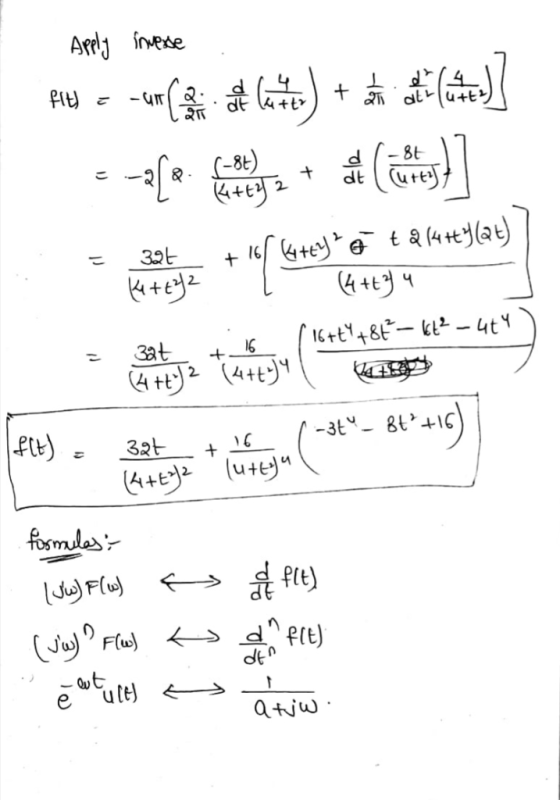 Apply inverse
f(t) = -4π[2/2π · d/dt (4/4+t²) + 1/2π · d²/dt² (4/4+t²)]
= -2[2· (-8t)/(4+t²)² + d/dt (-8t/(4+t²)²)]
= 32t/(4+t²)² + 16[((4+t²)² - t 2(4+t²)(2t))/(4+t²)⁴]
= 32t/(4+t²)² + 16/(4+t²)⁴ (16+t⁴+8t²-16t²-4t⁴)
f(t) = 32t/(4+t²)² + 16/(4+t²)⁴ (-3t⁴ - 8t² + 16)
formulas:-
(jω)F(ω) ⟷ d/dt f(t)
(jω)ⁿ F(ω) ⟷ dⁿ/dtⁿ f(t)
u(t) ⟷ 1/a+jω.